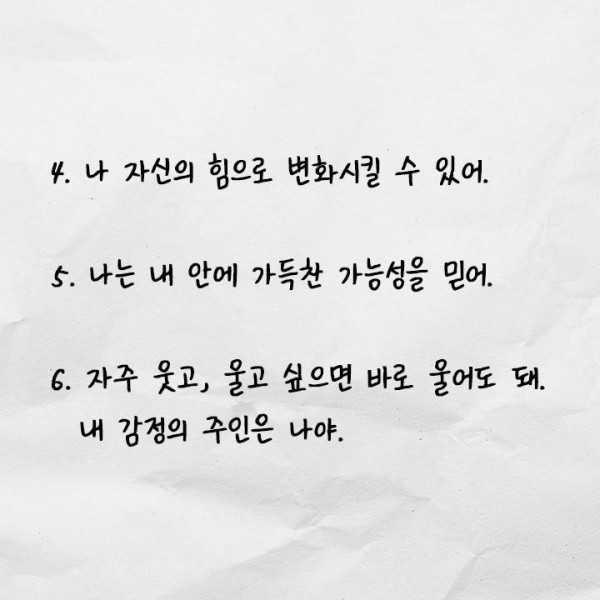 4. 나 자신의 힘으로 변화시킬 수 있어.
5. 나는 내 안에 가득찬 가능성을 믿어.
6. 자주 웃고, 울고 싶으면 바로 울어도 돼.
내 감정의 주인은 나야.